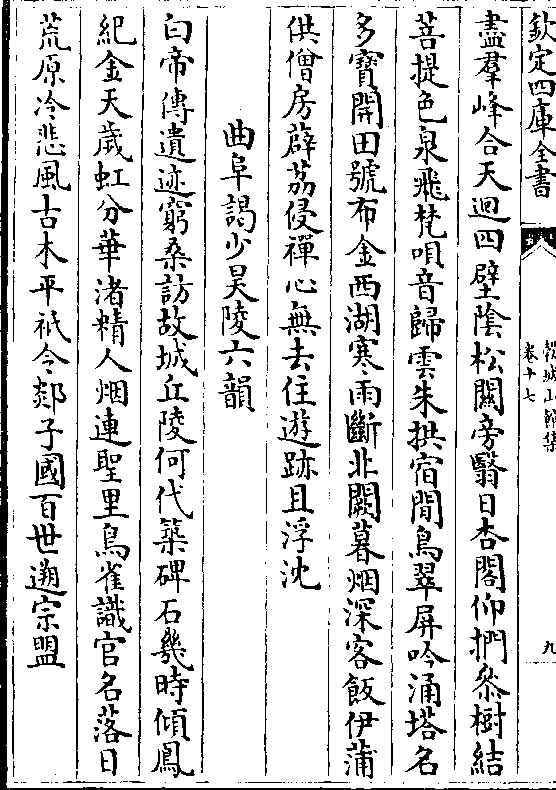 欽定四庫全書
穀城山館集
卷十七
九
盡羣峰合天迴四壁陰松關旁翳日杏閣仰捫叅樹結
菩提色泉飛梵唄音歸雲朱拱宿閒鳥翠屏吟涌塔名
多寶開田號布金西湖寒雨斷北闕暮烟深客飯伊蒲
供僧房薜荔侵禪心無去住遊跡且浮沈
曲阜謁少昊陵六韻
白帝傳遺迹窮桑訪故城丘陵何代築碑石幾時傾鳳
紀金天歲虹分華渚精人烟連聖里鳥雀識官名落日
荒原冷悲風古木平祇今郯子國百世遡宗盟